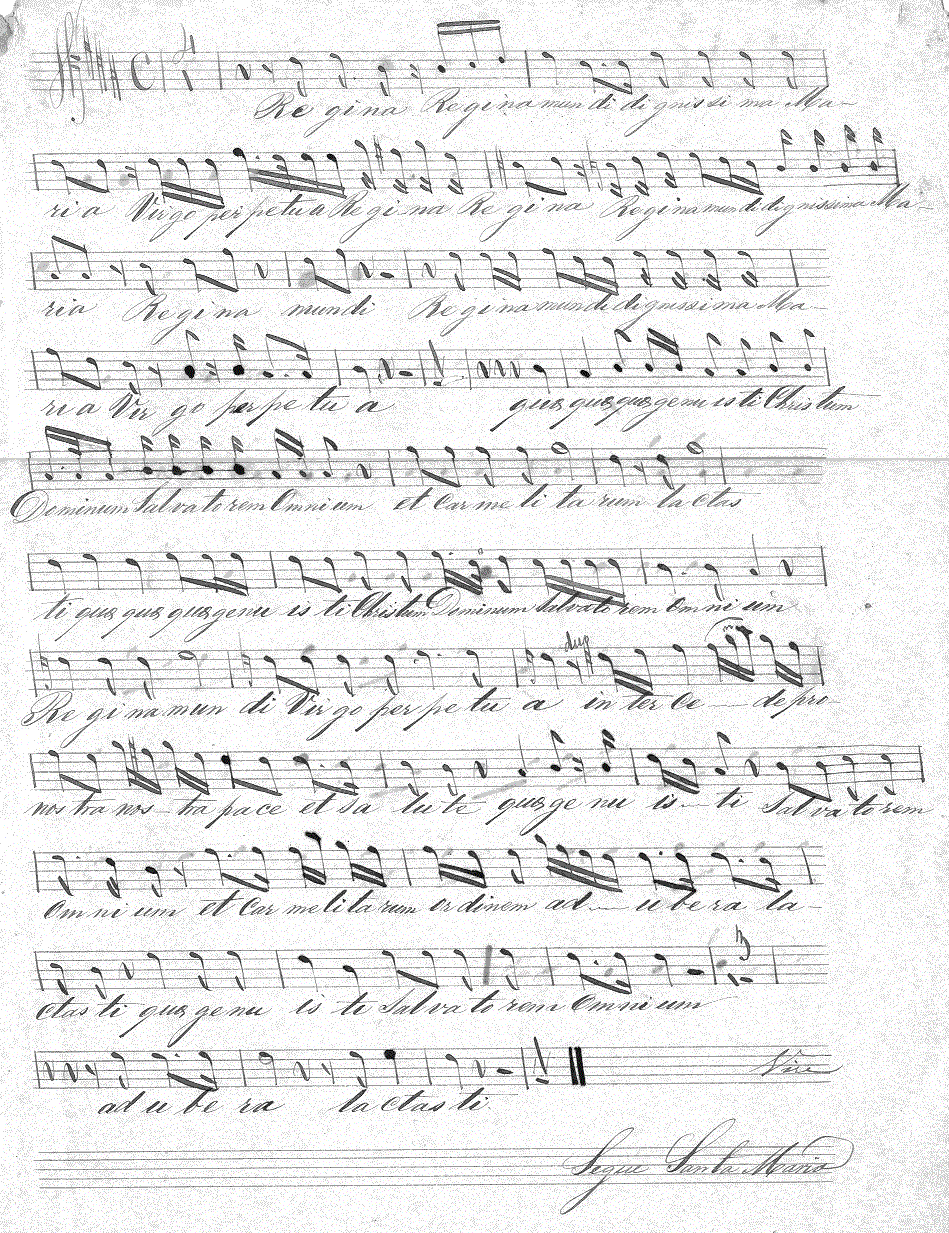 Re gi na Re gi na mun di di gnis si ma Ma-
ri a Vir go per pe tu a Re gi na Re gi na Re gi na mun di di gnissima Ma-
ria Re gi na mundi Re gi na mundi di gnissi ma Ma-
ri a Vir go per pe tu a quæ quæ quæ genu is ti Christum
Dominum Salvato rem Omni um et Car me li ta rum la ctas
ti quæ quæ quæ genu is ti Christum Dominum Salvato rem Om ni um
Re gi na mun di Vir go per pe tu a in ter ce - de pro-
nos tra nos - tra pace et Sa lu te quæ ge nu is - ti Sal va to rem
Om ni um et Car me li ta rum or dinem ad - u be ra la-
ctas ti quæ ge nu is ti Sal va to rem Omni um
ad u be ra la ctas ti.
Segue Santa Maria